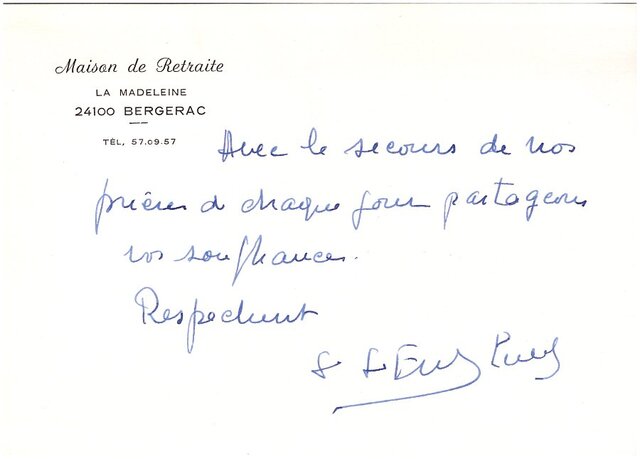 Maison de Retraite
LA MADELEINE
24100 BERGERAC
TÉL. 57.09.57
Avec le secours de nos
prières de chaque jour partageons
vos souffrances.
Respectueusement